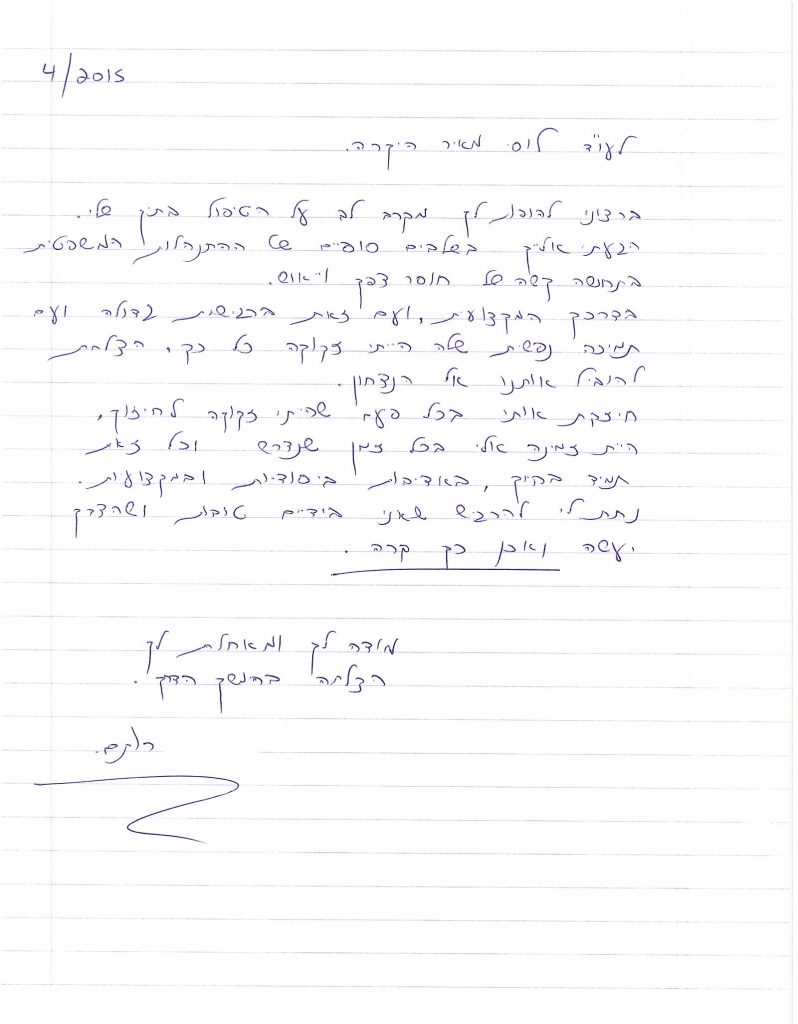 4/2015
לעו"ד לוסי מאיר היקרה.
ברצוני להודות לך מקרב לב על הטיפול בתיק שלי.
הגעתי אלייך בשלבים סופיים של ההתנהלות המשפטית
בתחושה קשה של חוסר צדק וייאוש.
בדרכך המקצועית, ועם זאת ברגישות גדולה ועם
תמיכה נפשית שלה הייתי זקוקה כל כך, הצלחת
להוביל אותנו אל הנצחון.
חיזקת אותי בכל פעם שהייתי זקוקה לחיזוק,
היית זמינה אלי בכל זמן שנדרש וכל זאת
תמיד בחיוך, באדיבות ביסודיות ובמקצועיות.
נתת לי להרגיש שאני בידיים טובות ושהצדק
יעשה ואכן כך קרה.
מודה לך ומאחלת לך
הצלחה בהמשך הדרך.
רותם.